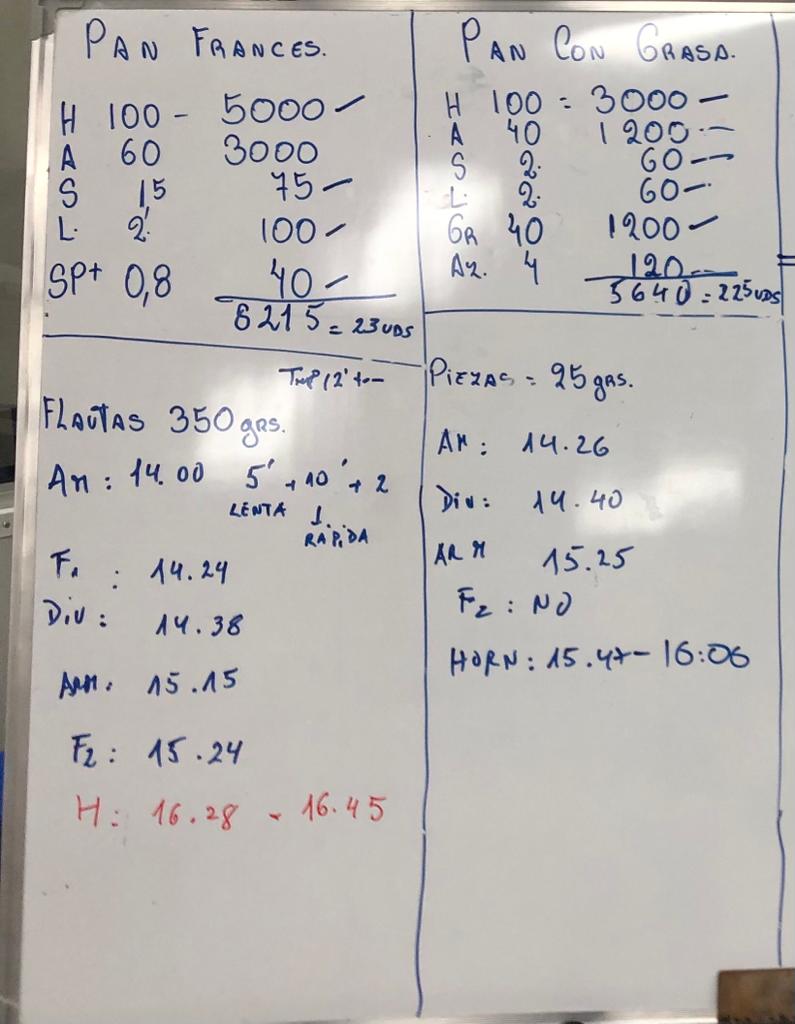 PAN FRANCES.
H 100 - 5000 —
A 60 3000
S 1,5 75 —
L. 2 100 —
SP+ 0,8 40 —
8215 = 23 UDS
FLAUTAS 350 grs.
AM: 14.00 5' + 10' + 2
LENTA RÁPIDA
F1: 14.24
DiV: 14.38
ARM. 15.15
F2: 15.24
H: 16.28 - 16.45
PAN CON GRASA.
H 100 = 3000 —
A 40 1200 —
S 2. 60 —
L. 2. 60 —
GR 40 1200 —
AZ. 4 120 —
5640 = 225 UDS
PIEZAS = 25 grs.
AM: 14.26
DiV: 14.40
ARM 15.25
F2: NO
HORN: 15.47 - 16:06